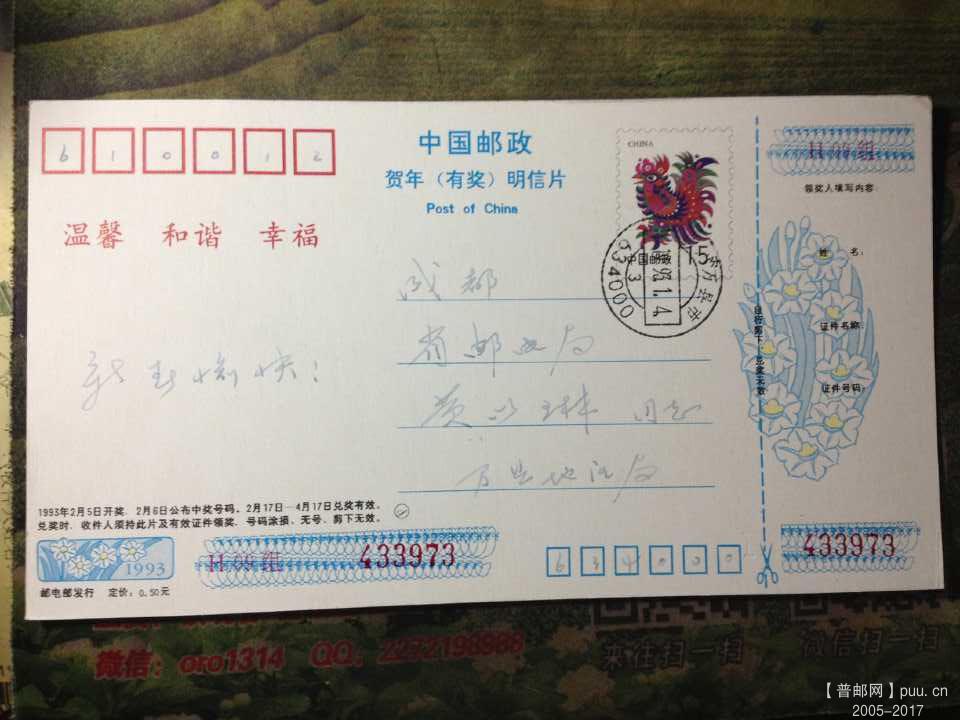 610012
中国邮政
贺年（有奖）明信片
Post of China
CHINA
中国邮政
15分
634000
1993.1.4
3
温馨 和谐 幸福
成都
省邮政局
新春愉快！
同志
1993年2月5日开奖，2月6日公布中奖号码。2月17日—4月17日兑奖有效。
兑奖时，收件人须持此片及有效证件领奖，号码涂损、无号、剪下无效。
1993
H 09组 433973
634000
邮电部发行 定价：0.50元
H 09组
领奖人填写内容：
姓 名：
证件名称：
证件号码：
自行剪下，兑奖无效
433973
微信：oro1314 QQ：2272198988
来往扫一扫
微信扫一扫
【普邮网】puu.cn
2005-2017